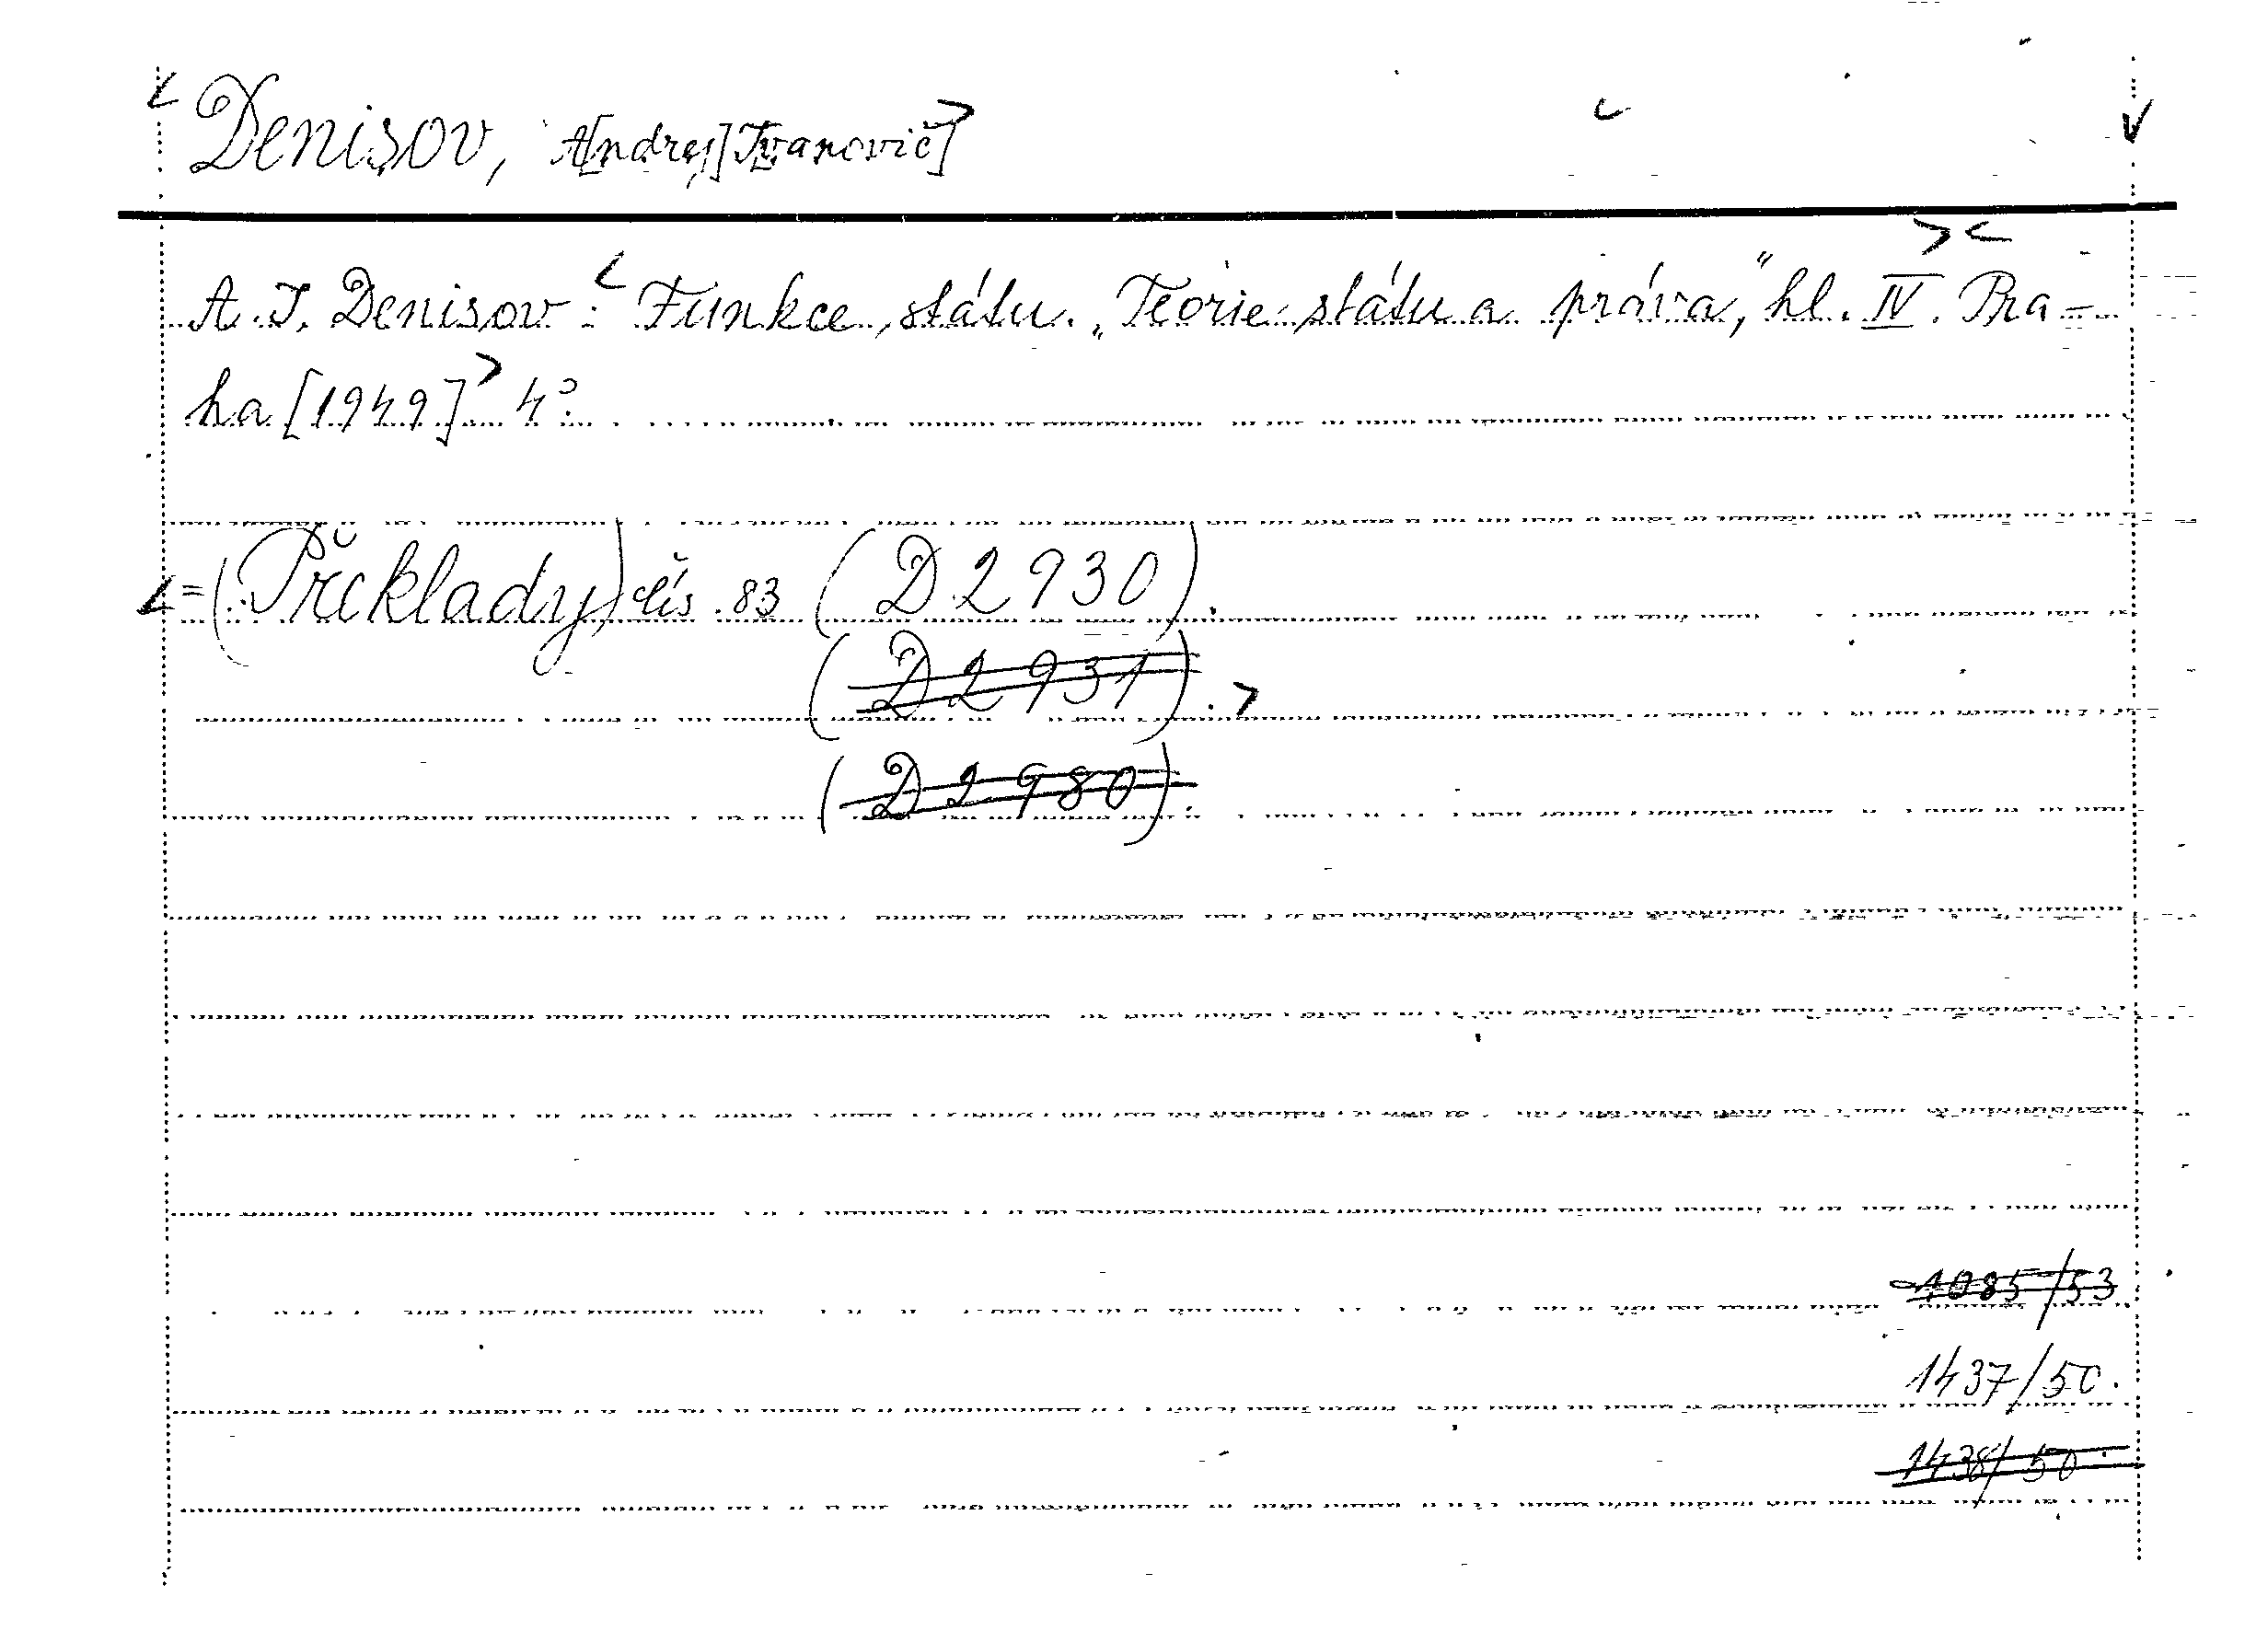 Denisov, A[ndrej] I[vanovič]
A. I. Denisov: Funkce státu. „Teorie státu a práva,“ hl. IV. Pra-
ha [1949] 4°.
=(Překlady) čís. 83 (D 2930).
(D 2931).
(D 2980).
1085/53
1437/50.
1438/50.